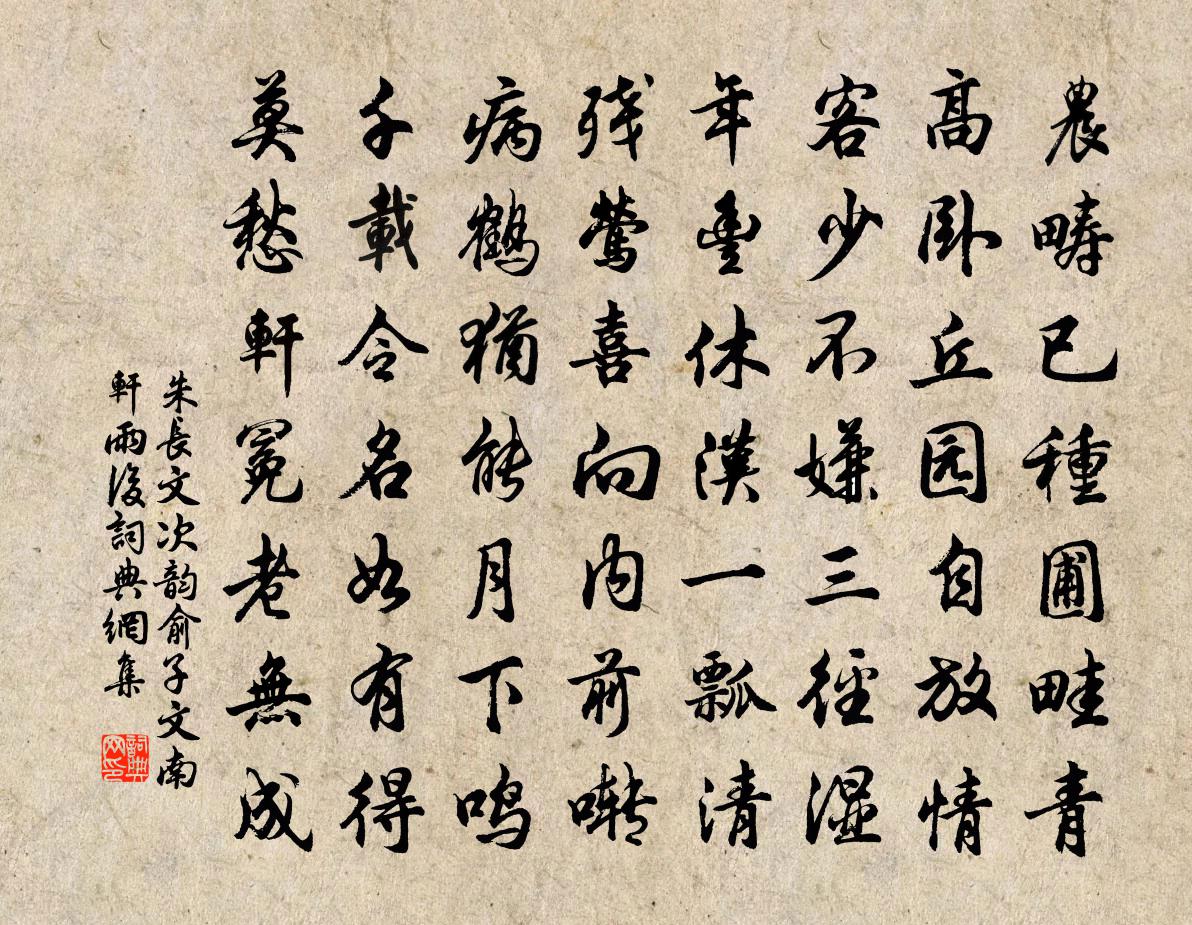 農疇已種圃畦青
高卧丘园自放情
客少不嫌三徑濕
年豊休漢一瓢清
残鶯喜向内前囀
病鶴猶能月下鳴
千載令名如有得
莫愁軒冕老無成
朱長文次韵俞子文南
軒雨後詞典網集
詞典
网印